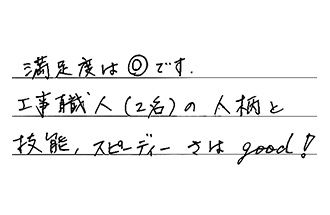 満足度は◎です.
工事職人(2名)の人柄と
技能,スピーディーさはgood!